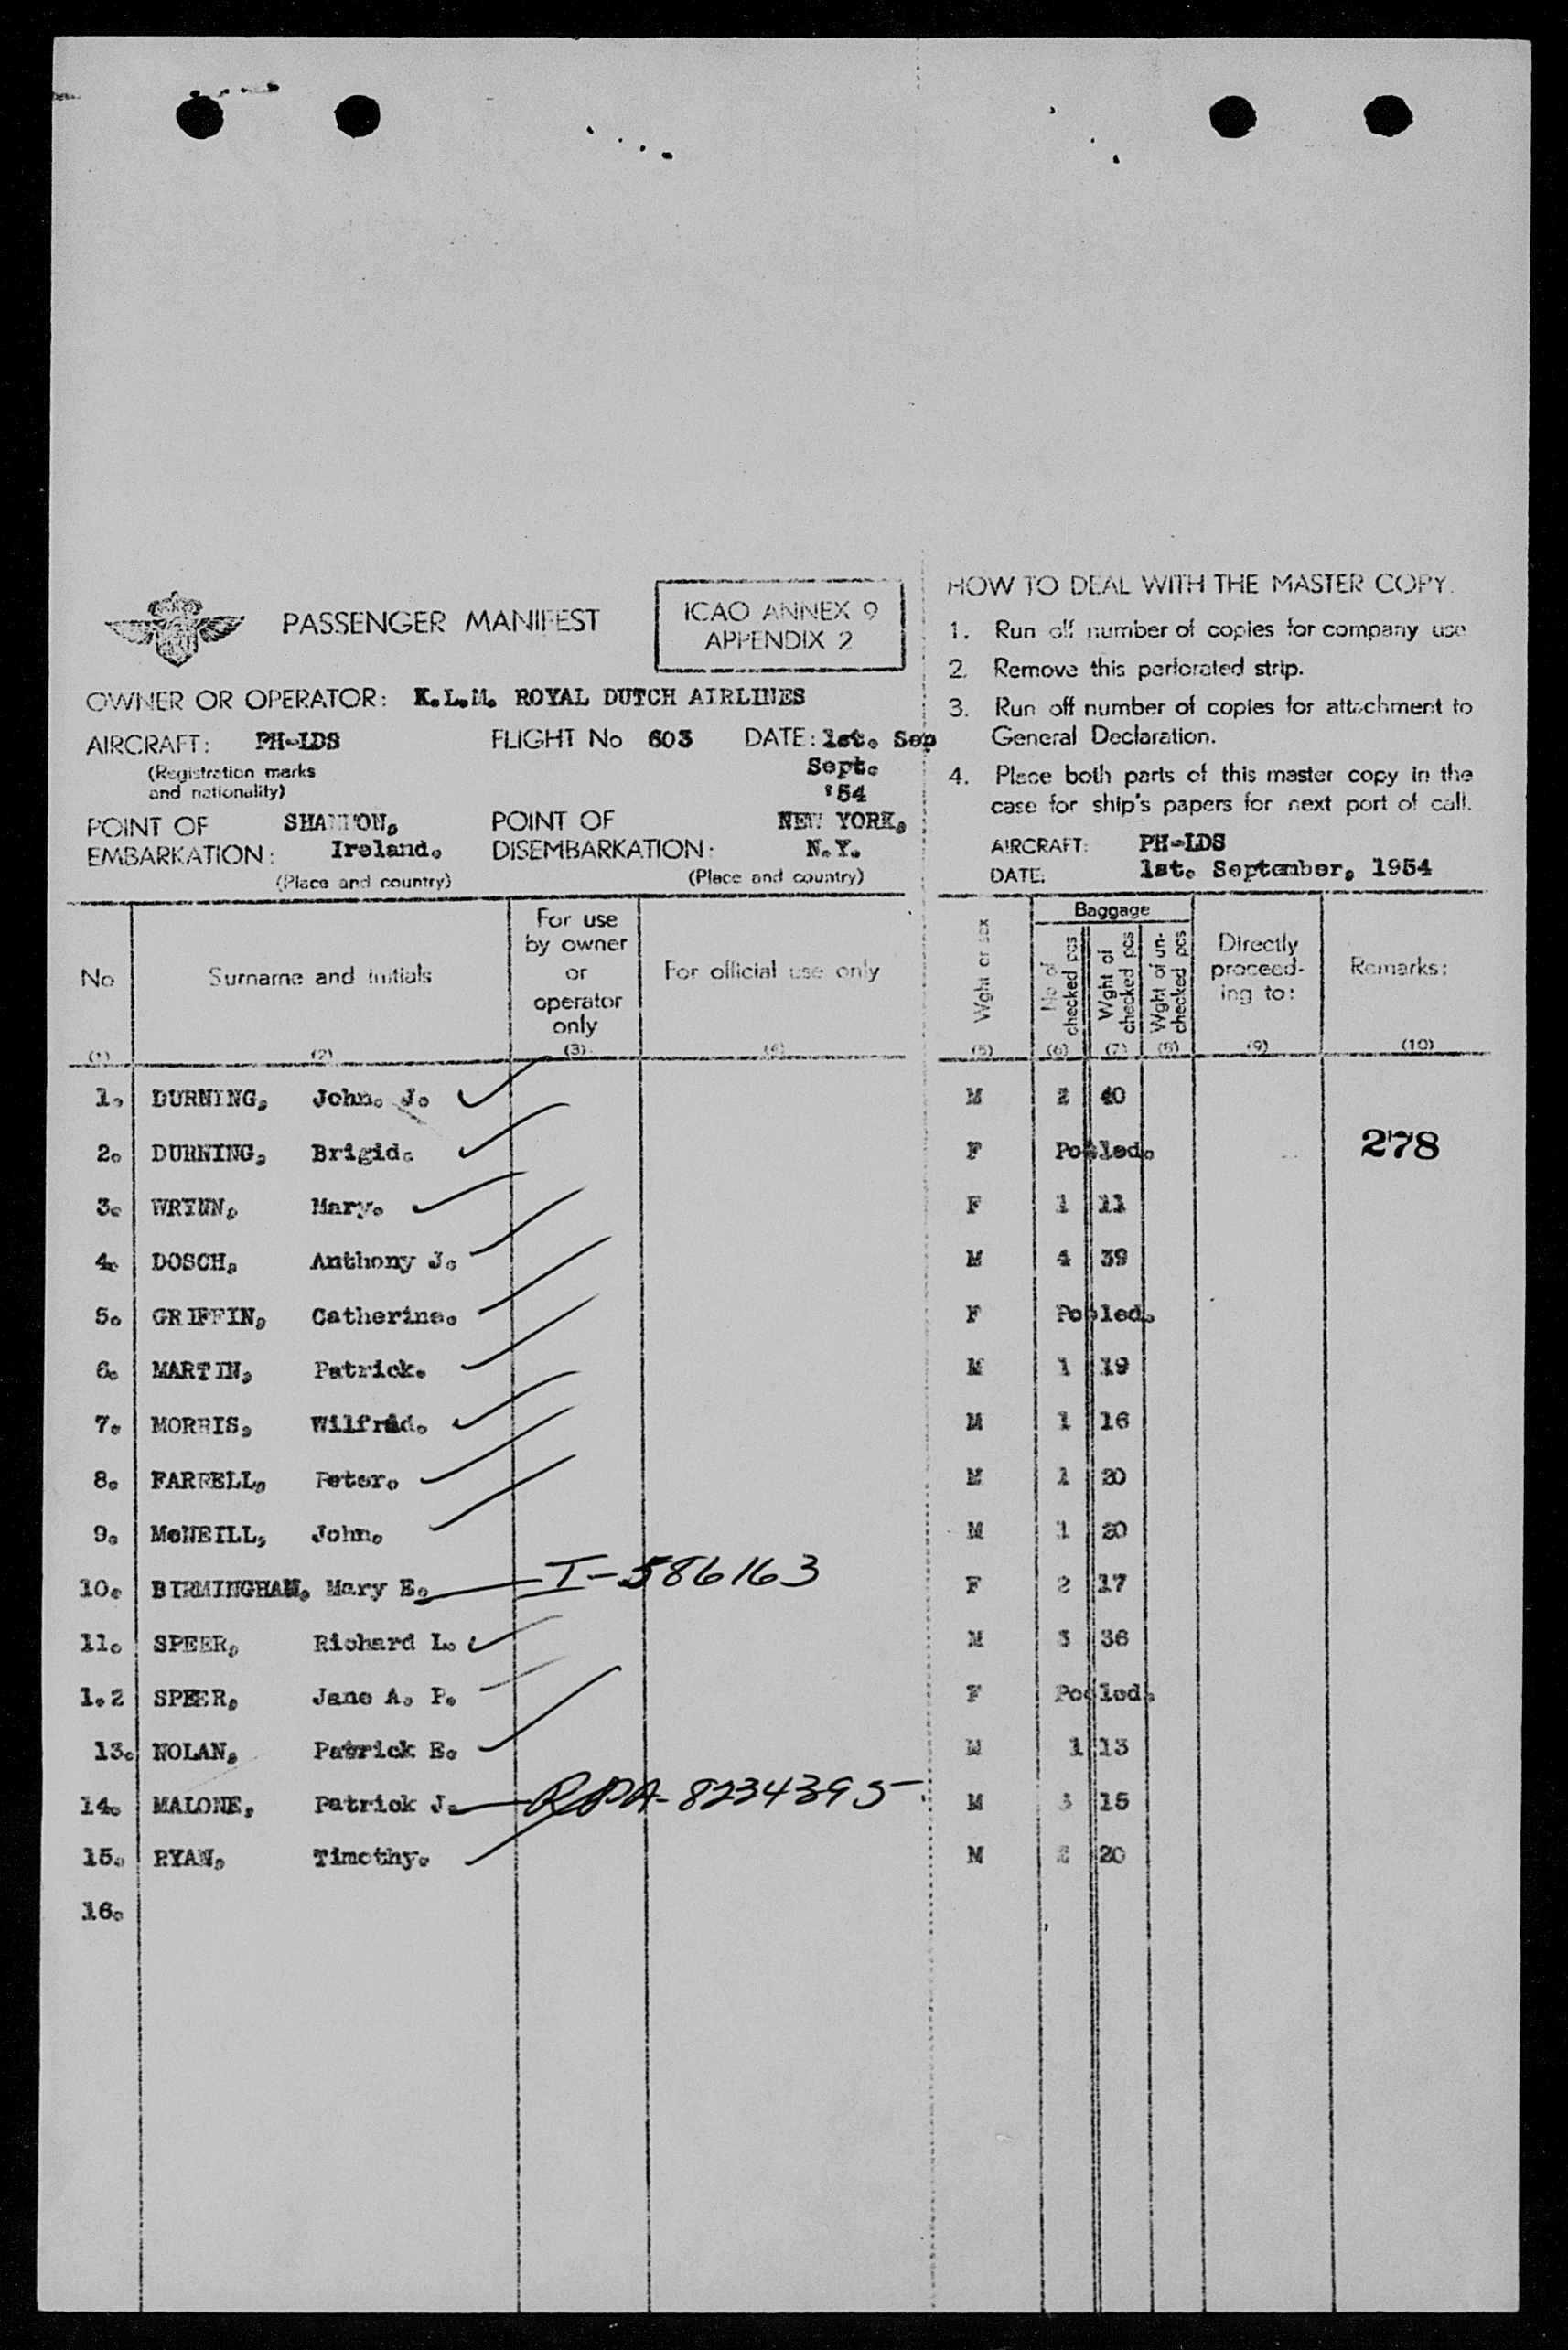 PASSENGER MANIFEST
ICAO ANNEX 9
APPENDIX 2
OWNER OR OPERATOR: K.L.M. ROYAL DUTCH AIRLINES
AIRCRAFT: PH-LDS FLIGHT No 603 DATE: 1st. Sep
(Registration marks Sept.
and nationality) '54
POINT OF SHANNON, POINT OF NEW YORK,
EMBARKATION: Ireland. DISEMBARKATION: N.Y.
(Place and country) (Place and country)
HOW TO DEAL WITH THE MASTER COPY.
1. Run off number of copies for company use
2. Remove this perforated strip.
3. Run off number of copies for attachment to
General Declaration.
4. Place both parts of this master copy in the
case for ship's papers for next port of call.
AIRCRAFT: PH-LDS
DATE: 1st. September, 1954
No Surname and initials For use by owner or operator only For official use only Wght or sex Baggage No of checked pcs Wght of checked pcs Wght of un-checked pcs Directly proceed-ing to: Remarks:
(1) (2) (3) (4) (5) (6) (7) (8) (9) (10)
1. DURNING, John. J. M 2 40
2. DURNING, Brigid. F Pooled. 278
3. WRYNN, Mary. F 1 11
4. DOSCH, Anthony J. M 4 39
5. GRIFFIN, Catherine. F Pooled.
6. MARTIN, Patrick. M 1 19
7. MORRIS, Wilfred. M 1 16
8. FARRELL, Peter. M 1 20
9. McNEILL, John. M 1 20
10. BIRMINGHAM. Mary E. I-586163 F 2 17
11. SPEER, Richard L. M 3 36
1.2 SPEER, Jane A. P. F Pooled.
13. NOLAN, Patrick E. M 1 13
14. MALONE, Patrick J. A-8234395 M 3 15
15. RYAN, Timothy. M 2 20
16.